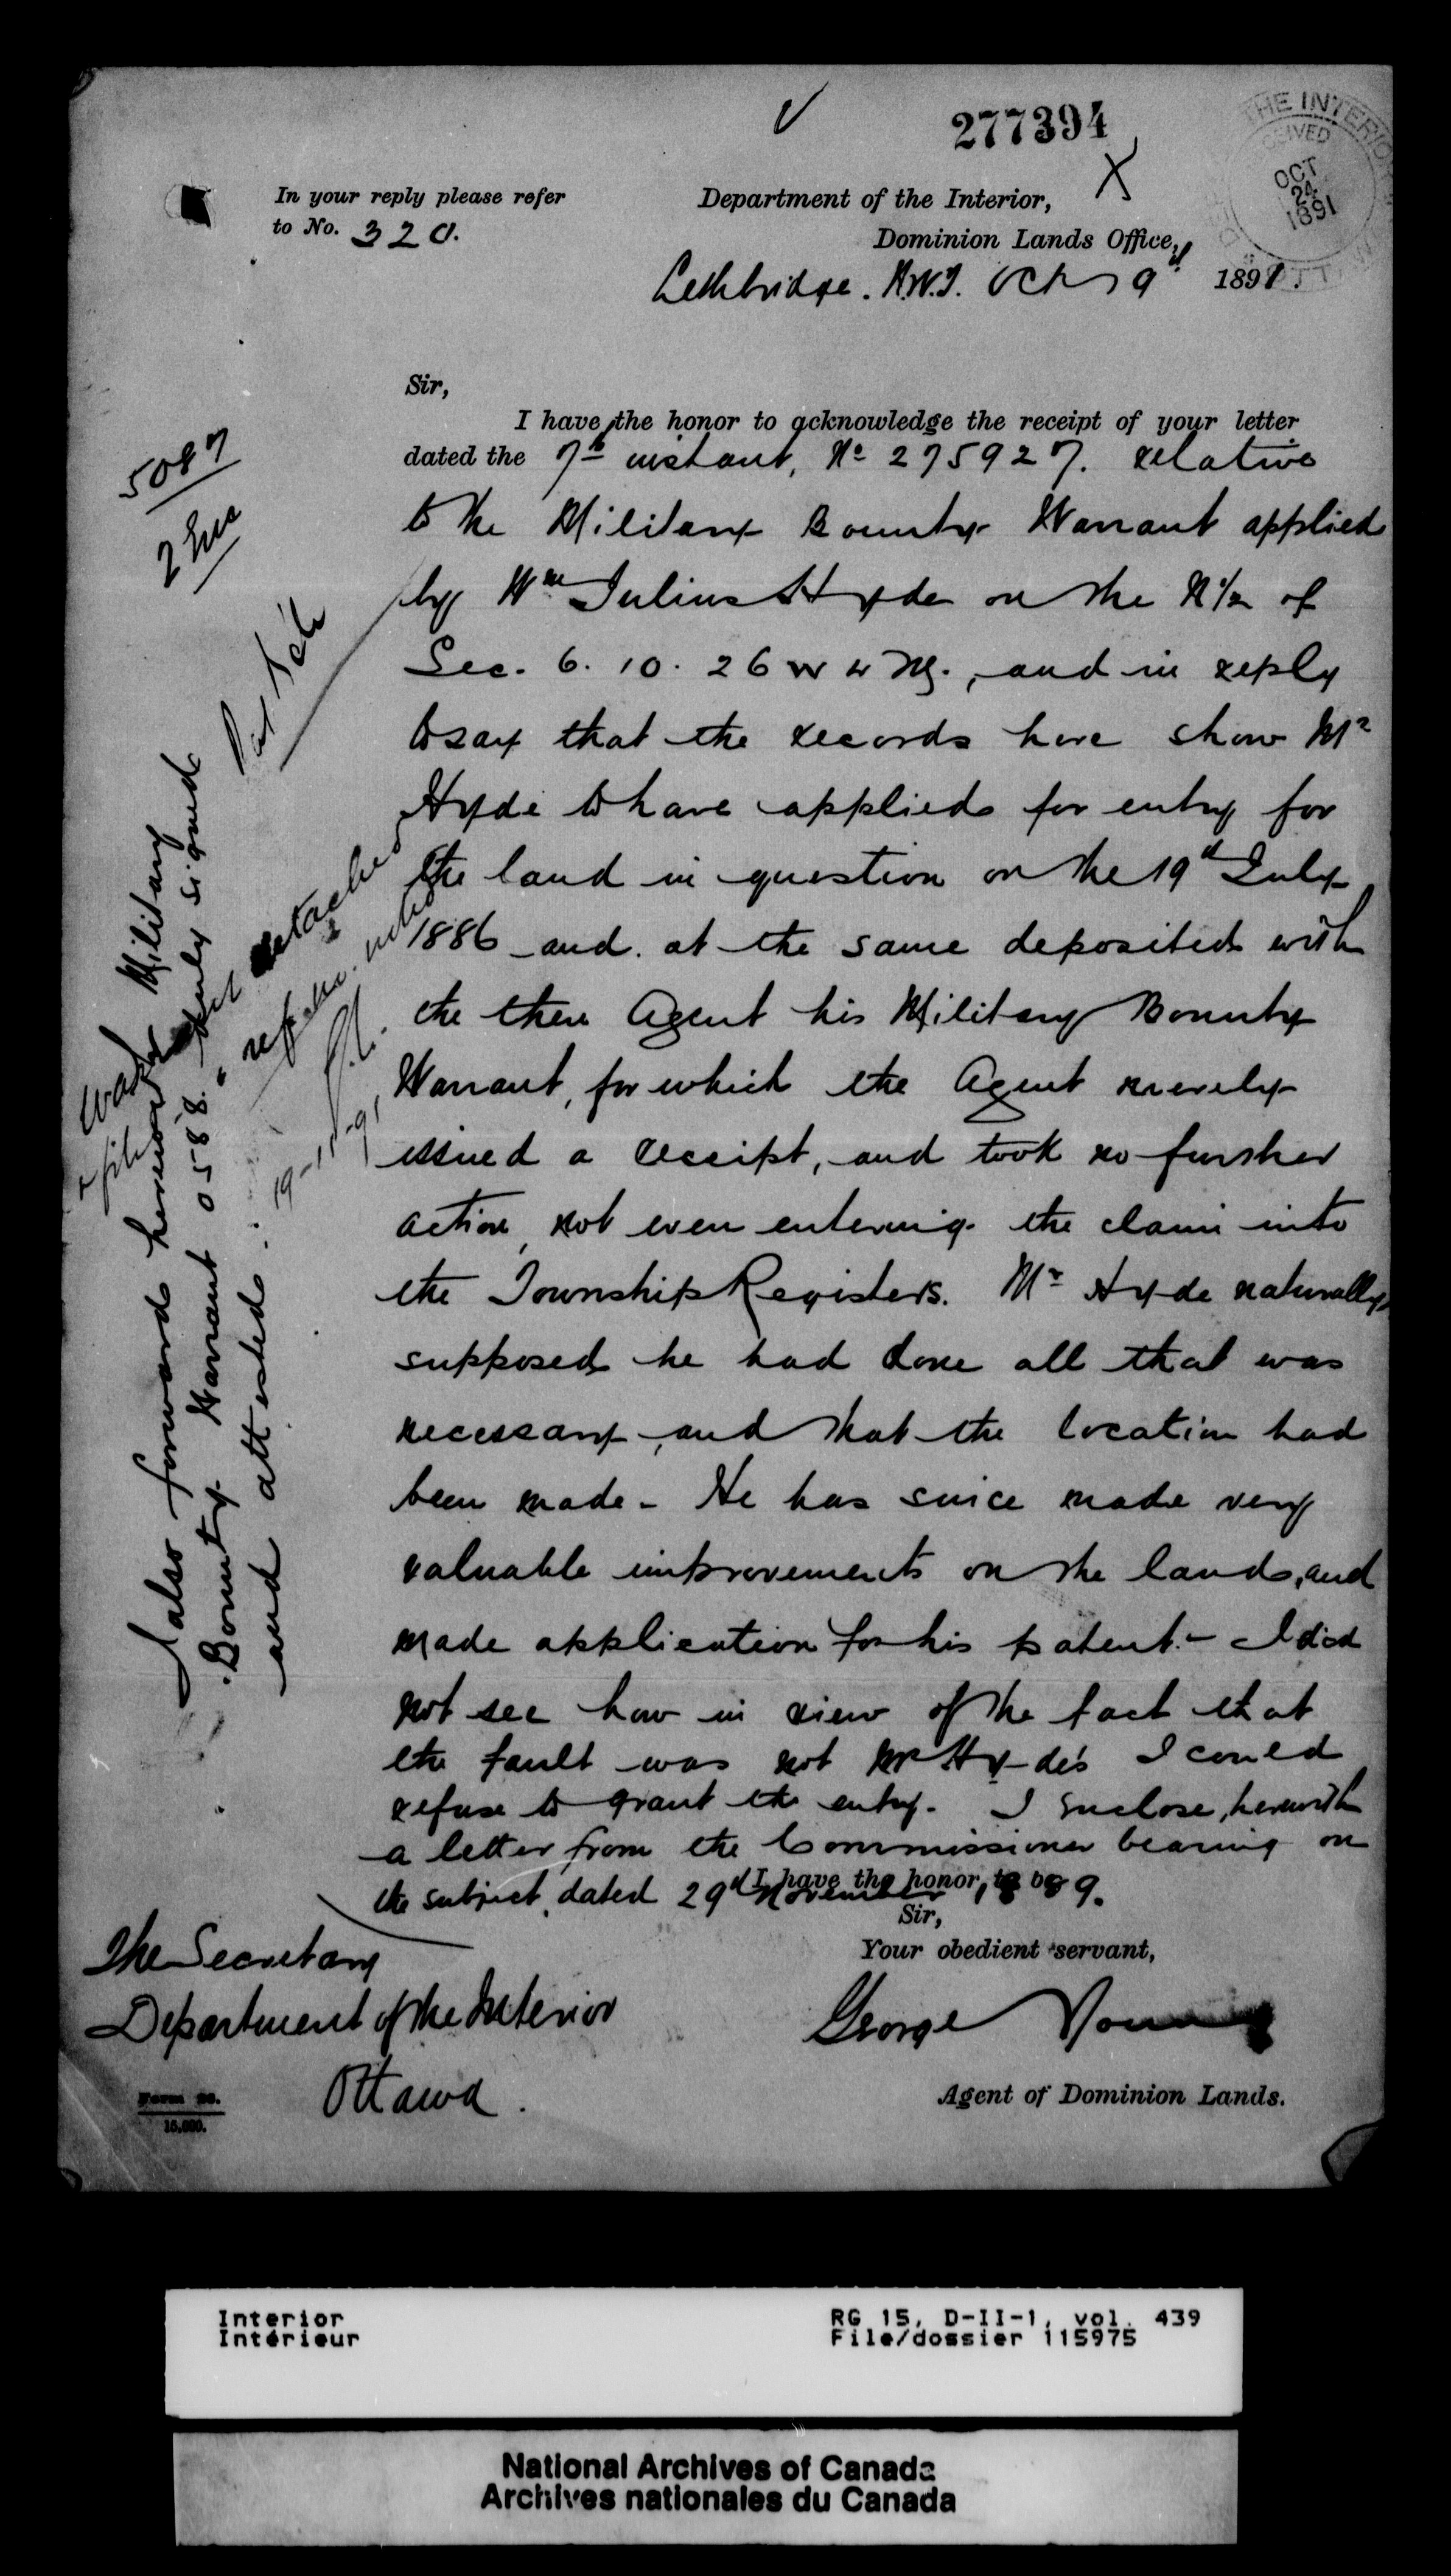 277394
THE INTERIOR
OCT
24
1891
In your reply please refer
to No. 320.
Department of the Interior,
Dominion Lands Office,
Lethbridge. N.W.T. Oct 19th 1891.
Sir,
I have the honor to acknowledge the receipt of your letter
dated the 7th instant, No 275927. relative
to the Military Bounty Warrant applied
by Wm Julius Hyde on the N 1/2 of
Sec. 6. 10. 26 W 4 M., and in reply
to say that the records here show Mr
Hyde to have applied for entry for
the land in question on the 19th July
1886 and at the same deposited with
the then Agent his Military Bounty
Warrant, for which the Agent merely
issued a receipt, and took no further
action, not even entering the claim into
the Township Registers. Mr Hyde naturally
supposed he had done all that was
necessary, and that the location had
been made - He has since made very
valuable improvements on the land, and
made application for his patent. - I did
not see how in view of the fact that
the fault was not Mr Hyde's I could
refuse to grant the entry. I enclose, herewith
a letter from the Commissioner bearing on
the subject, dated 29th November 1889.
I have the honor, to be
Sir,
Your obedient servant,
George Young
Agent of Dominion Lands.
The Secretary
Department of the Interior
Ottawa.
Form 20.
15,000.
5087
I also forward herewith Military
Bounty Warrant 0588 duly signed
and attested.
detached
19-11-91
Interior
Intérieur
RG 15, D-II-1, vol. 439
File/dossier 115975
National Archives of Canada
Archives nationales du Canada